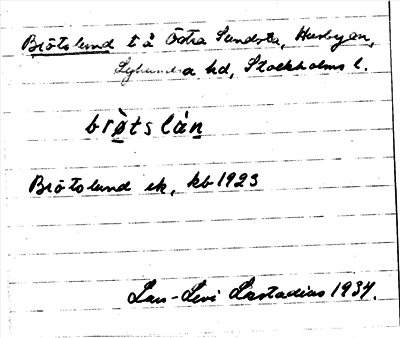 Brötslund t å Östra Sundsta, Husbyön,
Lyhundra hd, Stockholms l.
brø̀tslán
Brötslund ek, kb 1923
Lars-Levi Læstadius 1937.